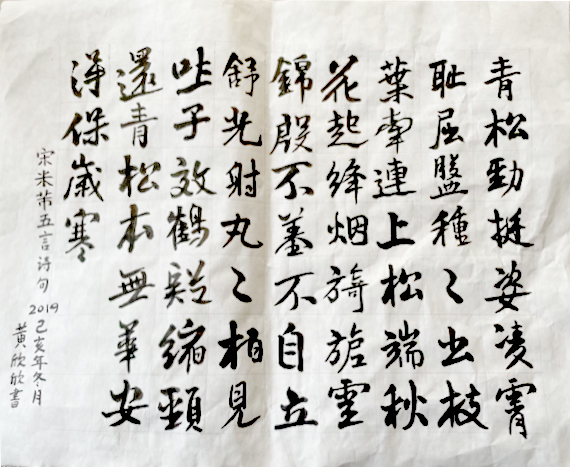 青松勁挺姿凌霄
耻屈盤種〻出枝
葉牽連上松端秋
花起絳烟旖旎雲
錦殷不羞不自立
舒光射丸〻柏見
吐子效鶴疑縮頸
還青松本無華安
淂保歲寒
宋米芾五言詩句
2019己亥年冬月
黃欣欣書